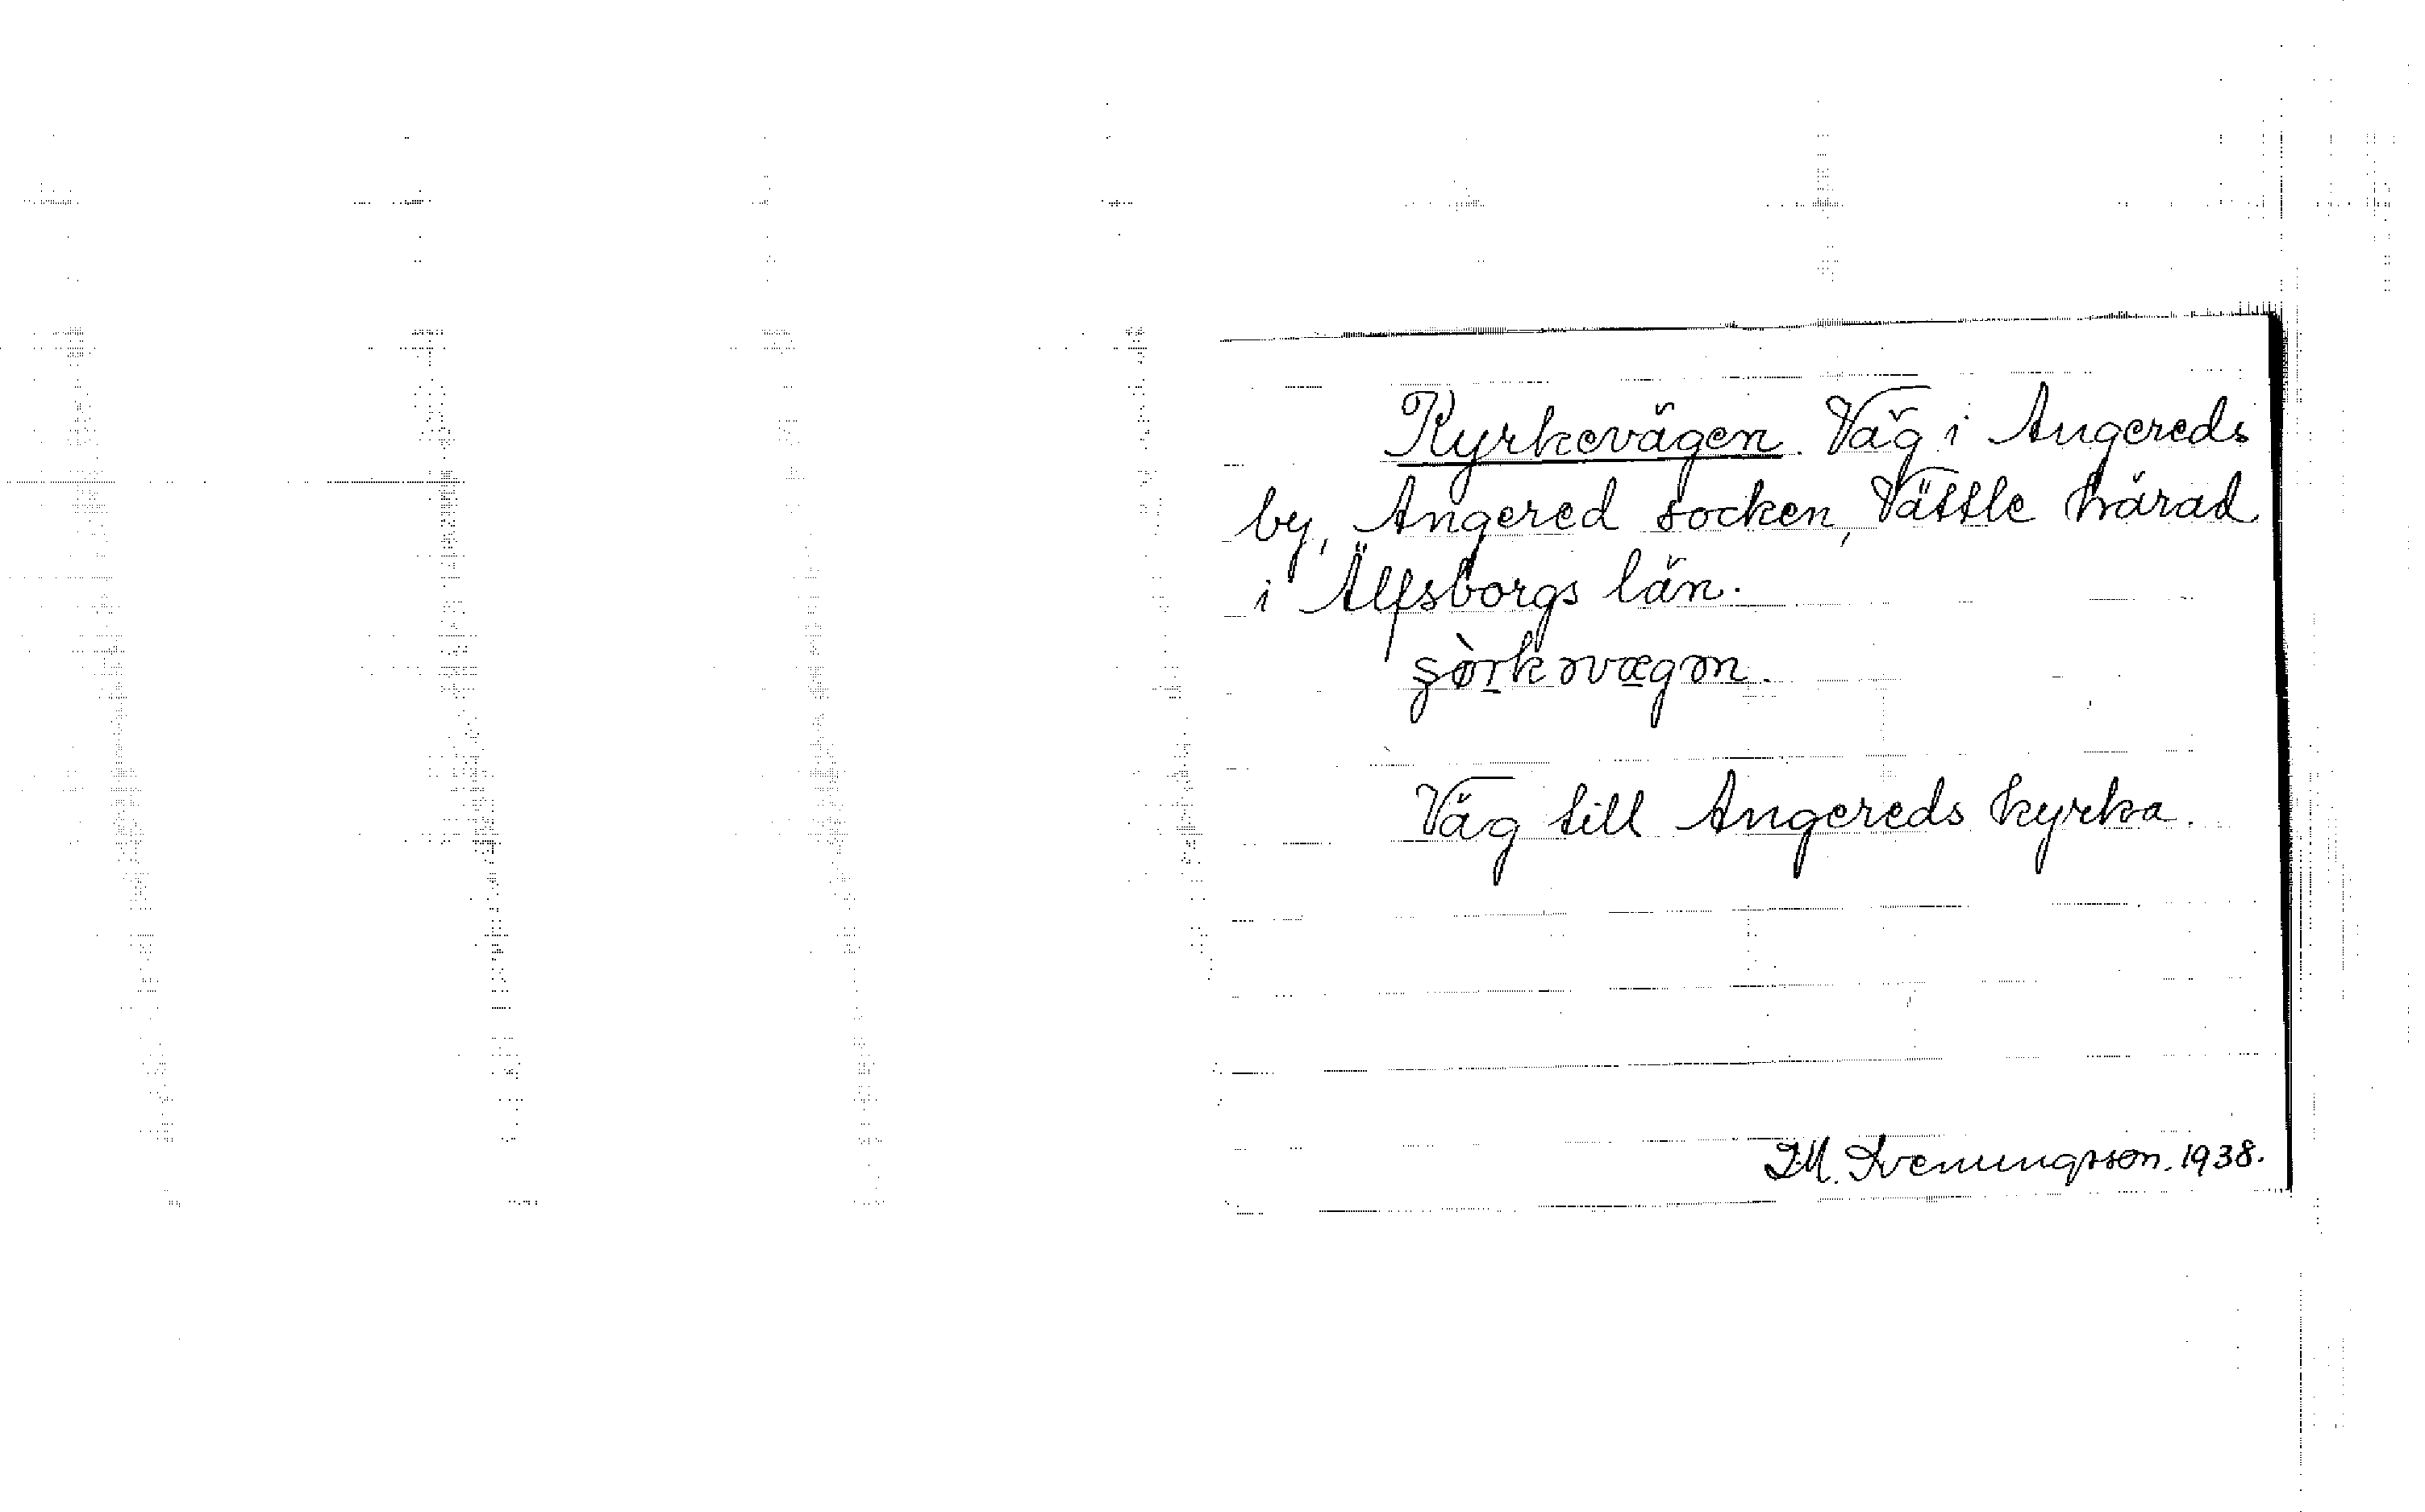 Kyrkevägen. Väg i Angereds
by, Angered socken, Vättle härad
i Älfsborgs län.
Väg till Angereds kyrka.
I.M. Svenungsson. 1938.